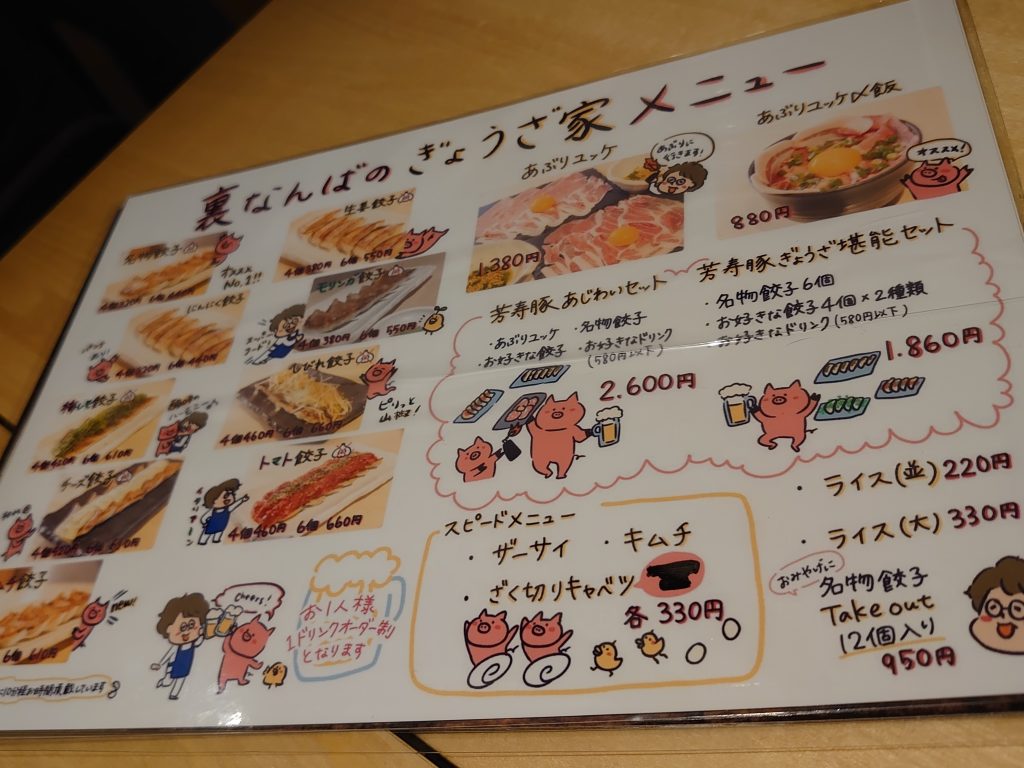 裏なんばのぎょうざ家メニュー
名物餃子
オススメ
No.1!!
4個320円
生姜餃子
4個380円 6個550円
にんにく餃子
4個320円 6個440円
モリンガ餃子
4個380円 6個550円
梅しそ餃子
4個420円 6個610円
しびれ餃子
ピリッと
山椒!
4個460円 6個660円
チーズ餃子
6個610円
トマト餃子
イタリアーン
4個460円 6個660円
チ餃子
new!
6個610円
Cheers!
お1人様
1ドリンクオーダー制
となります
あぶりユッケ
あぶりに
行きます!
1.380円
あぶりユッケ〆飯
オススメ!
880円
芳寿豚あじわいセット
・あぶりユッケ ・名物餃子
・お好きな餃子 ・お好きなドリンク
(580円以下)
2.600円
芳寿豚ぎょうざ堪能セット
・名物餃子6個
・お好きな餃子4個×2種類
お好きなドリンク(580円以下)
1.860円
スピードメニュー
・ザーサイ ・キムチ
・ざく切りキャベツ
各330円
・ライス(並)220円
・ライス(大)330円
おみやげに
名物餃子
Take out
12個入り
950円